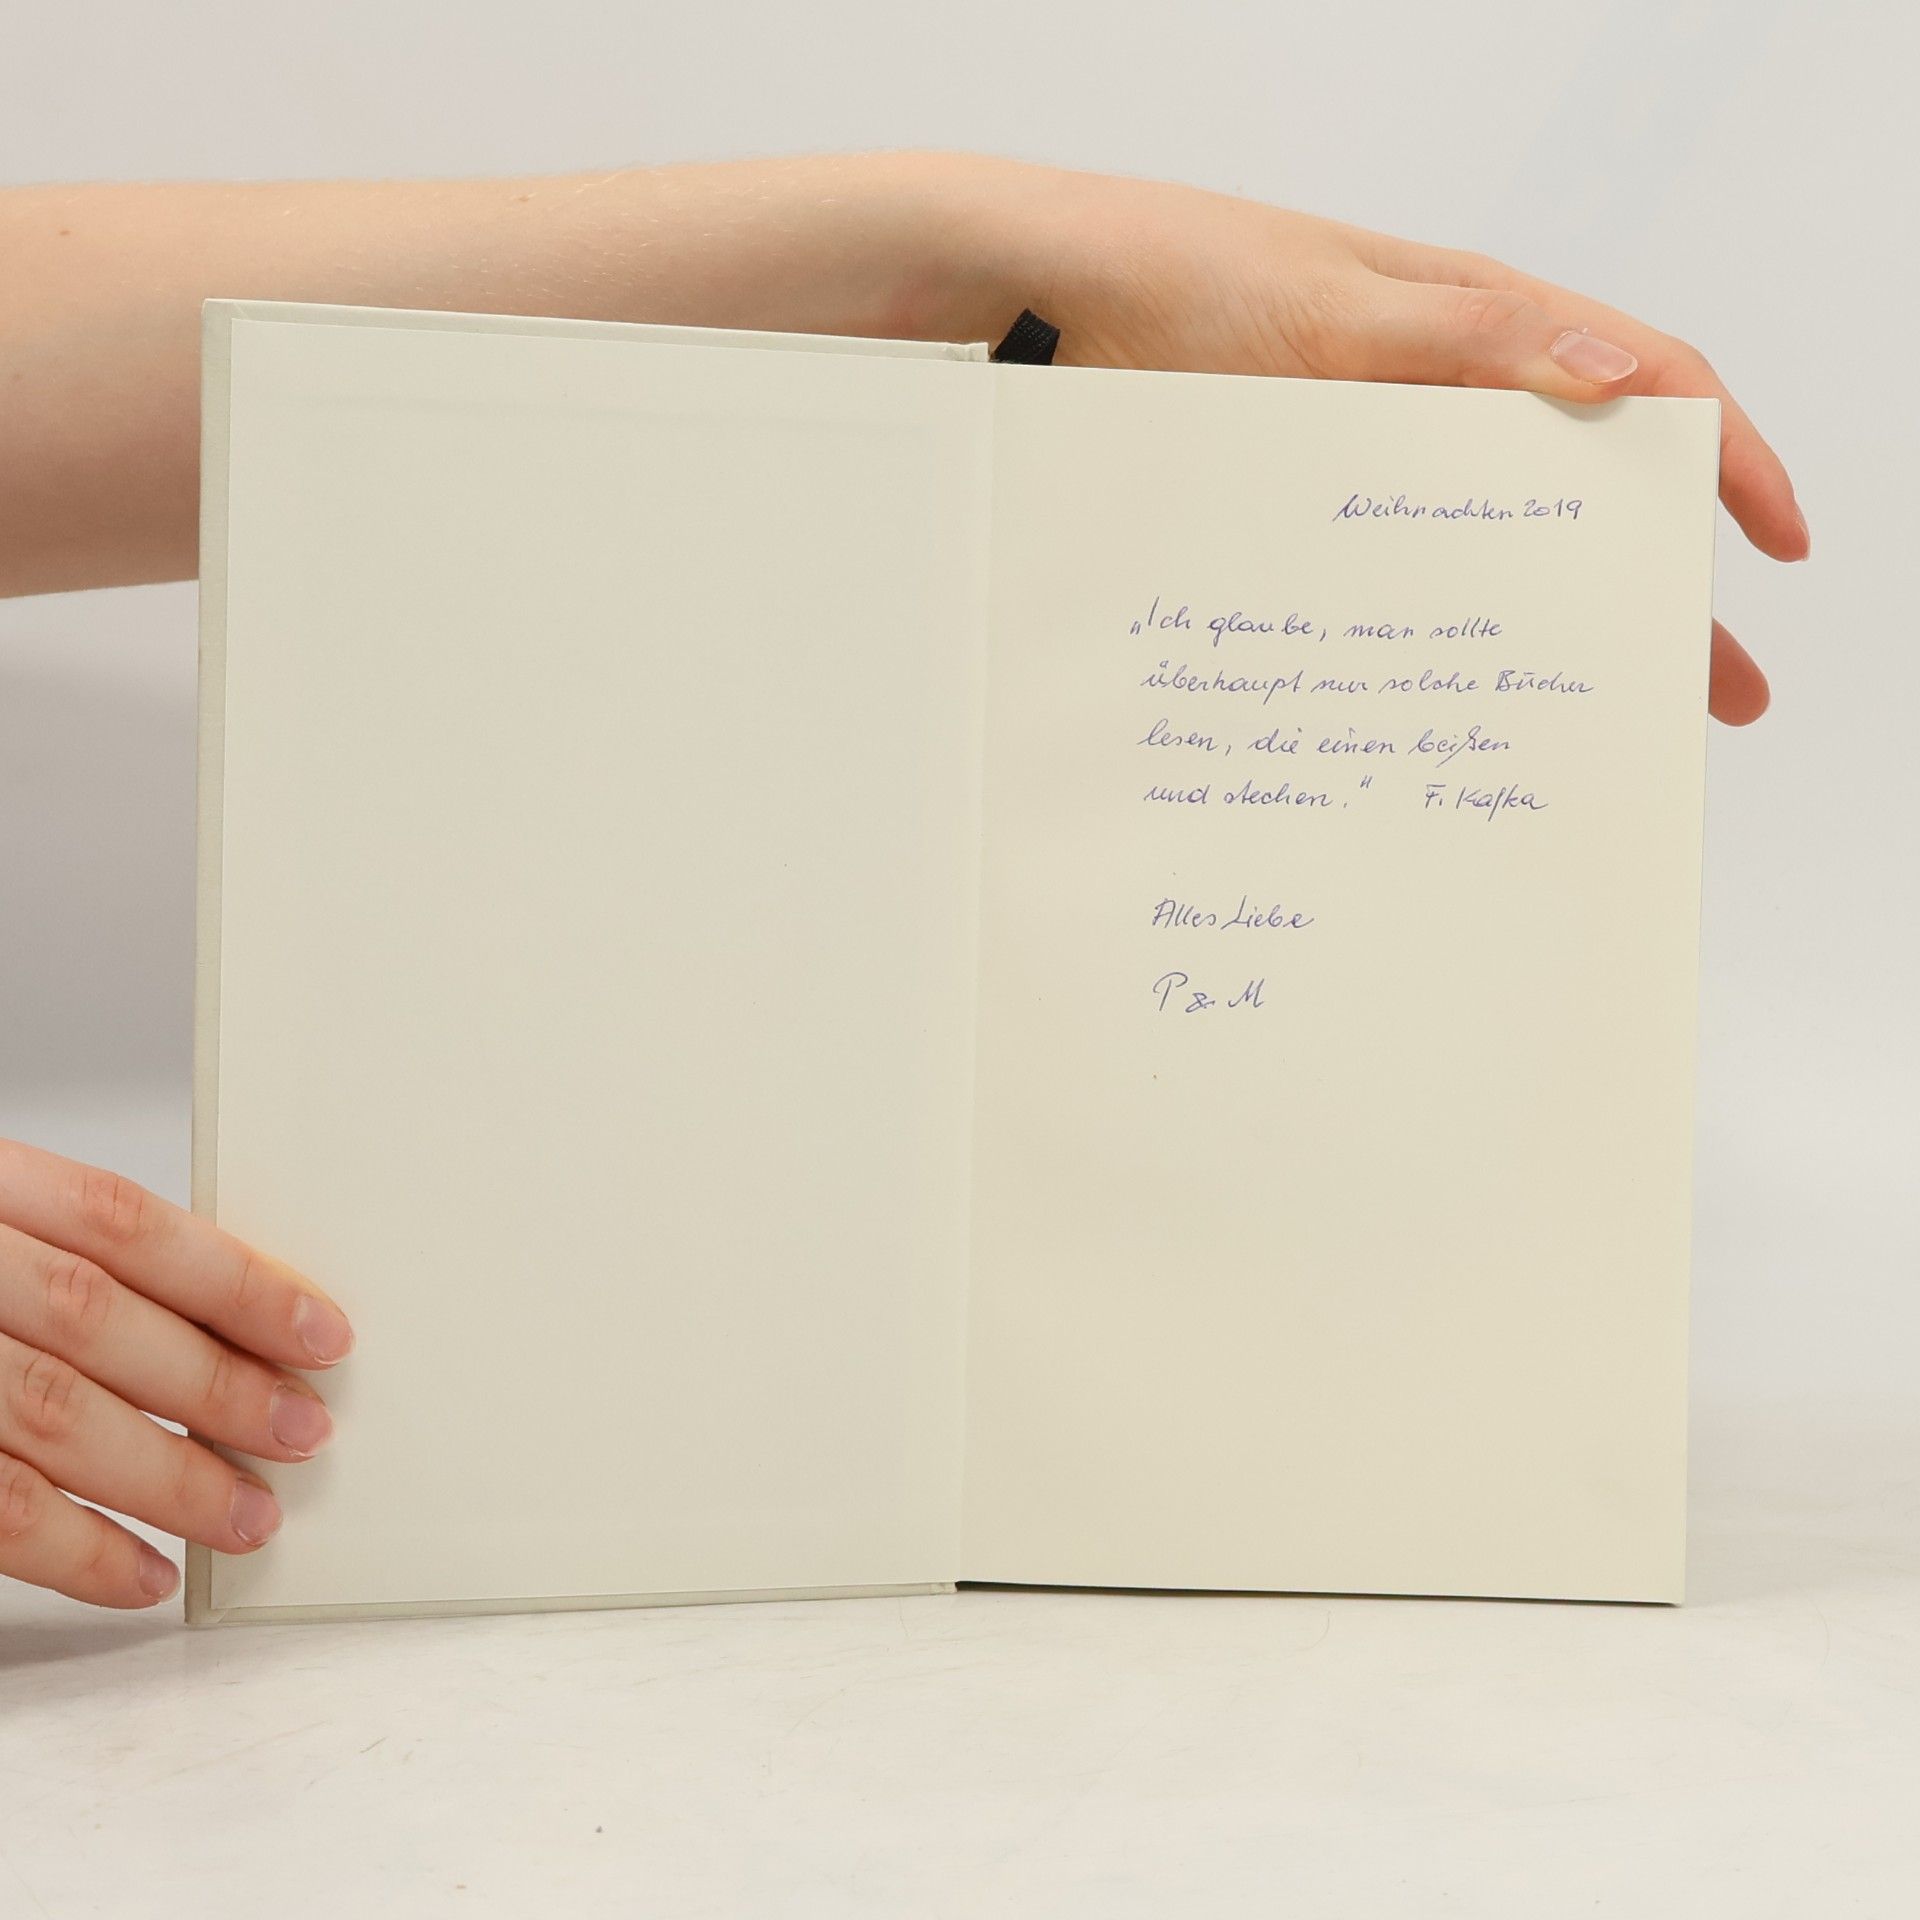 Weihnachten 2019
„Ich glaube, man sollte
überhaupt nur solche Bücher
lesen, die einen beißen
und stechen." F. Kafka
Alles Liebe
P & M